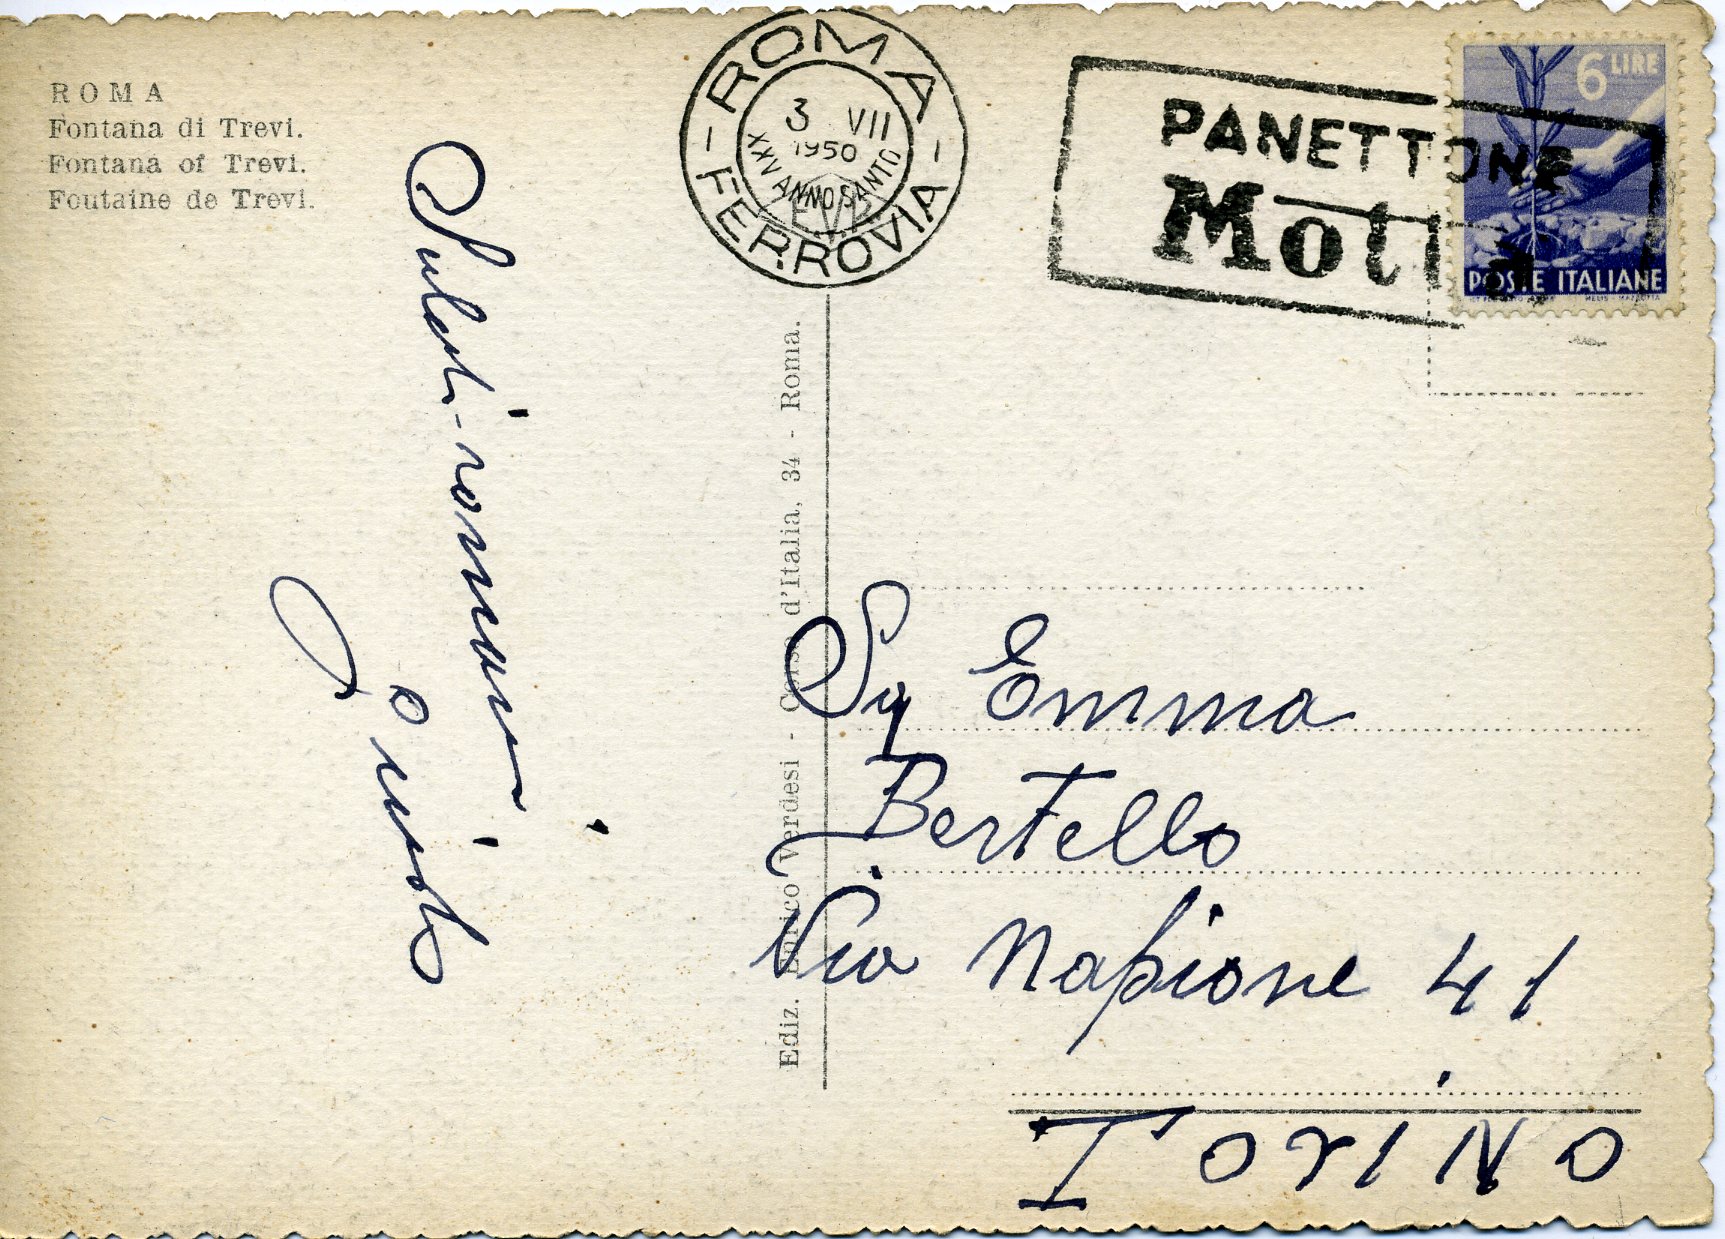 ROMA
Fontana di Trevi.
Fontana of Trevi.
Foutaine de Trevi.
ROMA
3 VII
1950
XXV ANNO SANTO
FERROVIA
PANETTONE
Motta
6 LIRE
POSTE ITALIANE
Saluti romani
Ediz. Enrico Verdesi - Corso d'Italia, 34 - Roma.
Sig Emma
Bertello
Via Napione 41
Torino